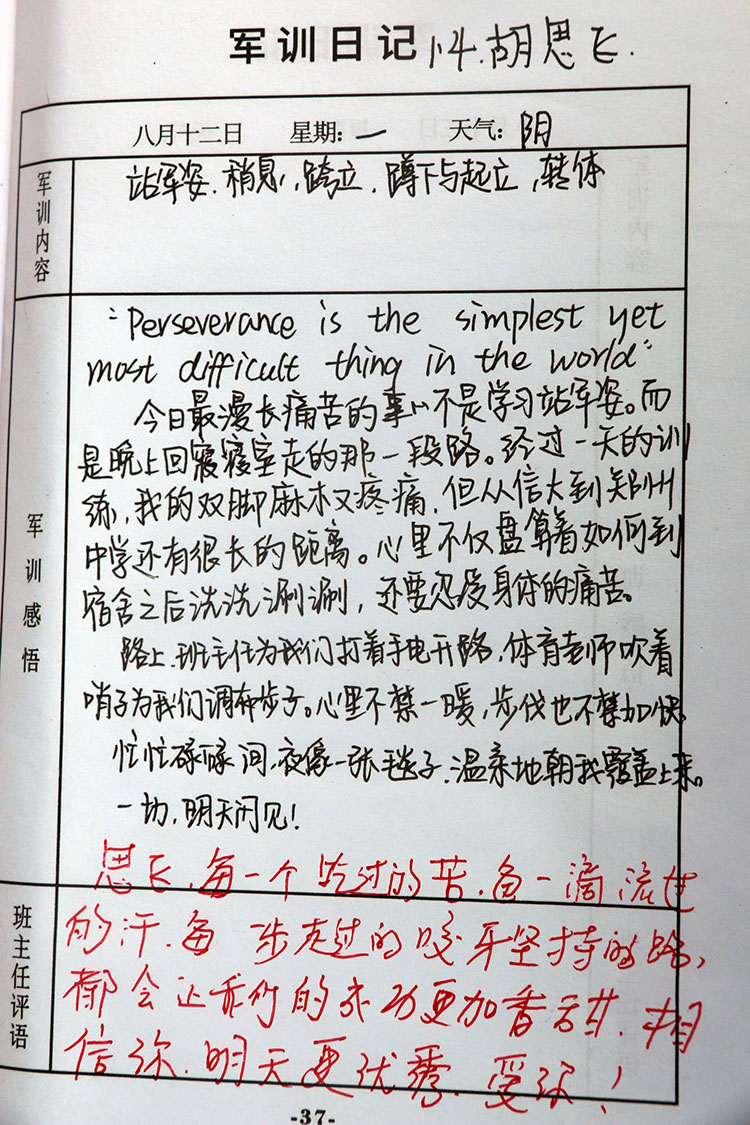 军训日记 14.胡思飞.
八月十二日 星期:一 天气:阴
军训内容
站军姿.稍息,跨立.蹲下与起立,转体
"Perseverance is the simplest yet
most difficult thing in the world"
今日最漫长痛苦的事不是学习站军姿。而
是晚上回寝寝室走的那一段路。经过一天的训
练,我的双脚麻木又疼痛,但从信大到郑州
中学还有很长的距离。心里不仅盘算着如何到
宿舍之后洗洗涮涮,还要忍受身体的痛苦。
军训感悟
路上,班主任为我们打着手电开路,体育老师吹着
哨子为我们调整步子。心里不禁一暖,步伐也不禁加快
忙忙碌碌间,夜像一张毯子.温柔地朝我覆盖上来。
一切,明天问见!
思飞,每一个吃过的苦,每一滴流过
的汗.每一步走过的咬牙坚持的路,
都会让我们的成功更加香甜.相
信你.明天更优秀.爱你!
班主任评语
-37-